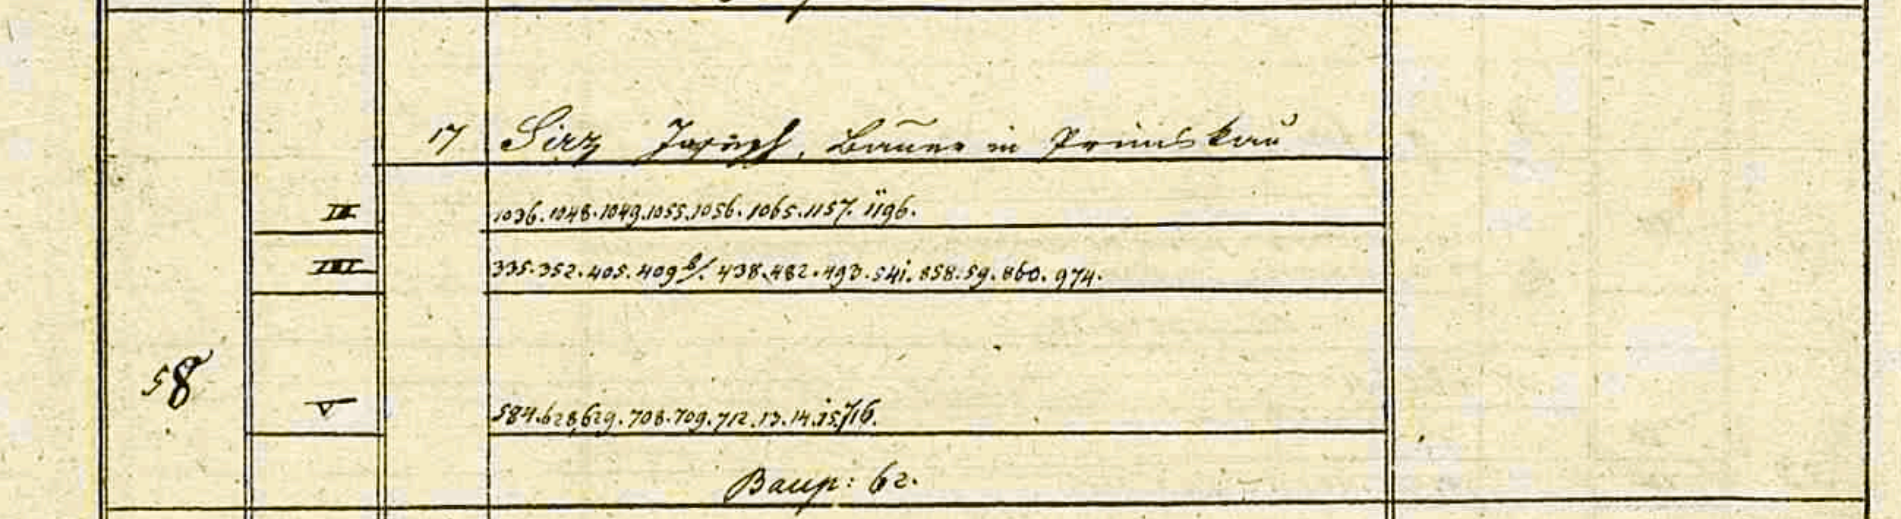 17 Sirz Joseph, Bauer in Prinskau
II 1036. 1048. 1049. 1055. 1056. 1065. 1157. 1196.
III 335. 352. 405. 409 b/. 438. 482. 493. 541. 858. 59. 860. 974.
58
V 584. 628, 629. 708. 709. 712. 13. 14. 15. 716.
Baup: 62.